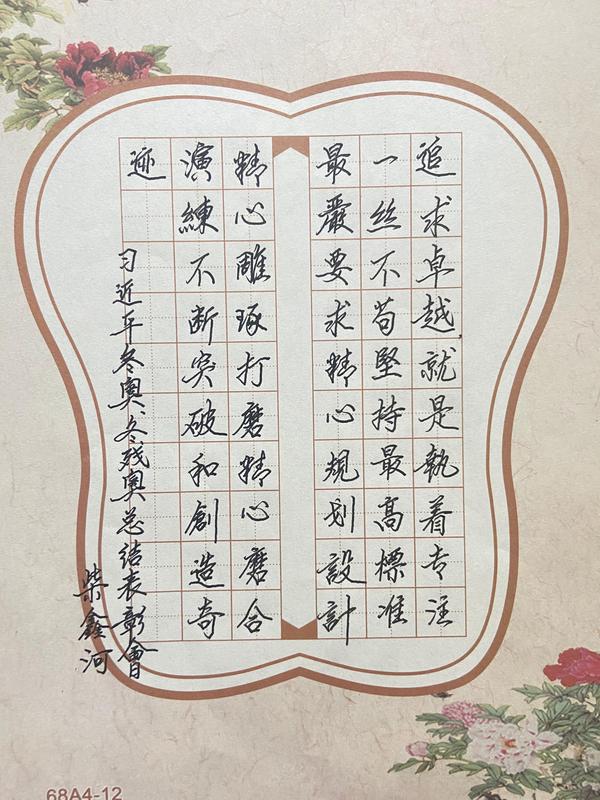 追求卓越就是執着专注
一丝不苟堅持最高標准
最嚴要求精心規划設計
精心雕琢打磨精心磨合
演練不断突破和創造奇
迹
习近平冬奥、冬残奥总结表彰會
柴鑫河
68A4-12